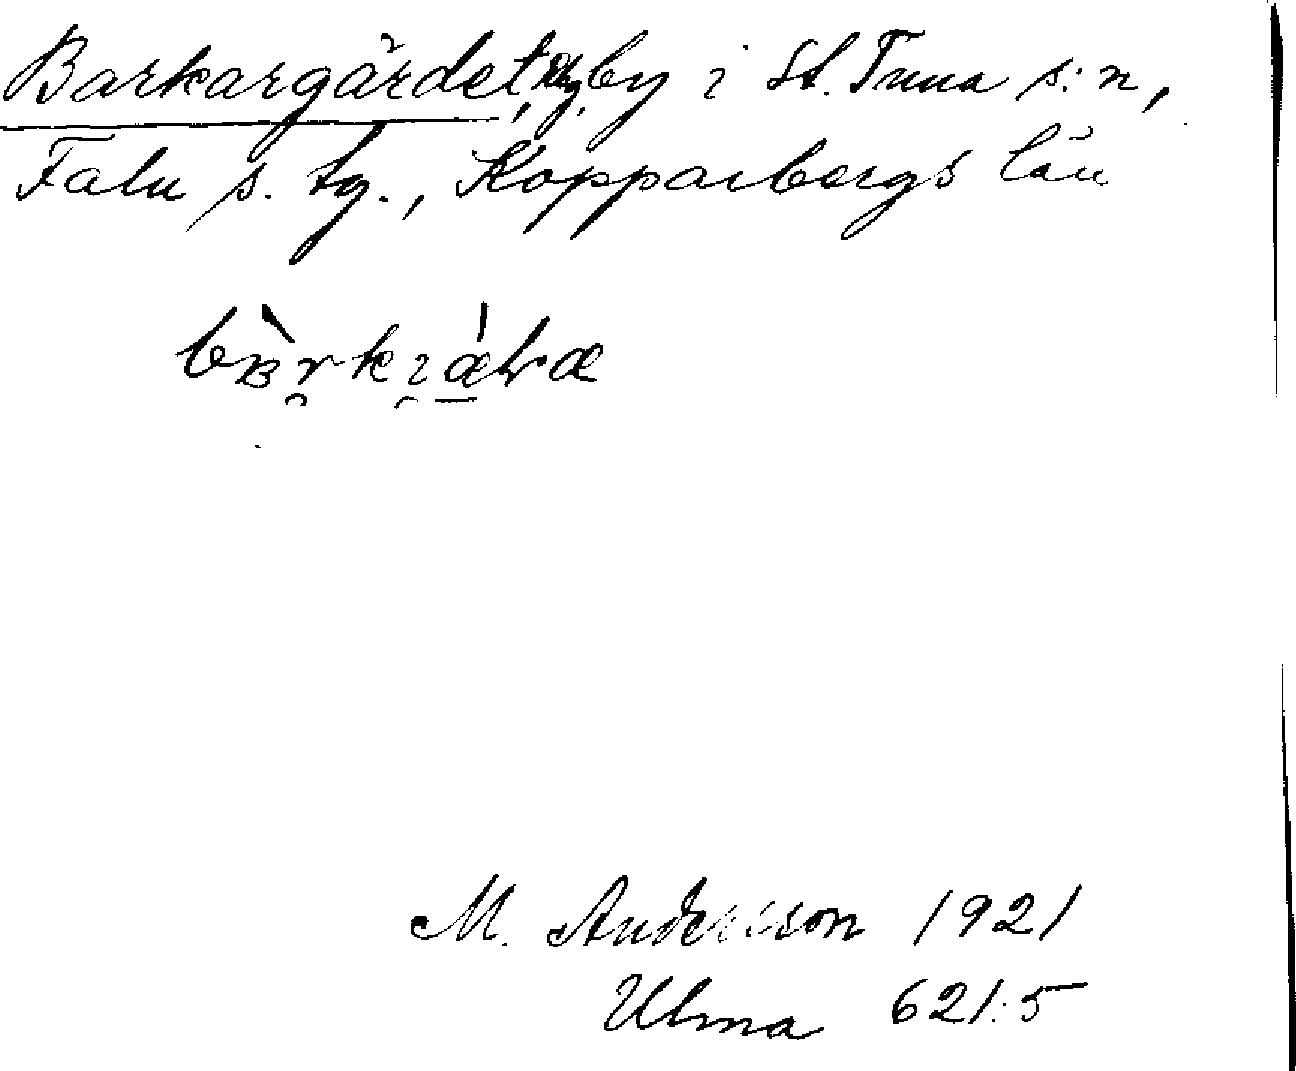 Barkargärdet, by i St. Tuna s:n,
Falu s. tg., Kopparbergs län
M. Andersson 1921
Ulma 621:5